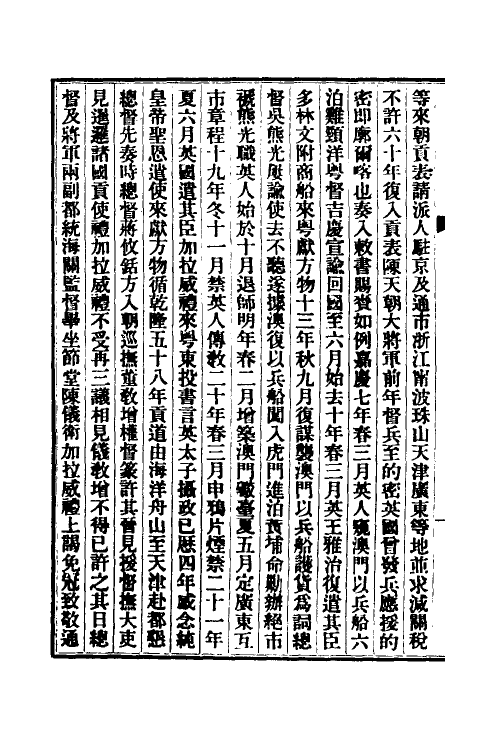 等來朝貢表請派人駐京及通市浙江甯波珠山天津廣東等地並求減關稅
不許六十年復入貢表陳天朝大將軍前年督兵至的密英國曾發兵應援的
密即廓爾喀也奏入敕書賜賚如例嘉慶七年春三月英人窺澳門以兵船六
泊雞頸洋粵督吉慶宣諭回國至六月始去十年春三月英王雅治復遣其臣
多林文附商船來粵獻方物十三年秋九月復謀襲澳門以兵船護貨爲詞總
督吳熊光屢諭使去不聽遂據澳復以兵船闖入虎門進泊黃埔命勒辦絕市
褫熊光職英人始於十月退師明年春二月增築澳門礮臺夏五月定廣東互
市章程十九年冬十一月禁英人傳敎二十年春三月申鴉片煙禁二十一年
夏六月英國遣其臣加拉威禮來粵東投書言英太子攝政已歷四年感念純
皇帝聖恩遣使來獻方物循乾隆五十八年貢道由海洋舟山至天津赴都懇
總督先奏時總督蔣攸銛方入朝巡撫董敎增權督篆許其晉見援督撫大吏
見暹邏諸國貢使禮加拉威禮不受再三議相見儀敎增不得已許之其日總
督及將軍兩副都統海關監督畢坐節堂陳儀衛加拉威禮上謁免冠致敬通